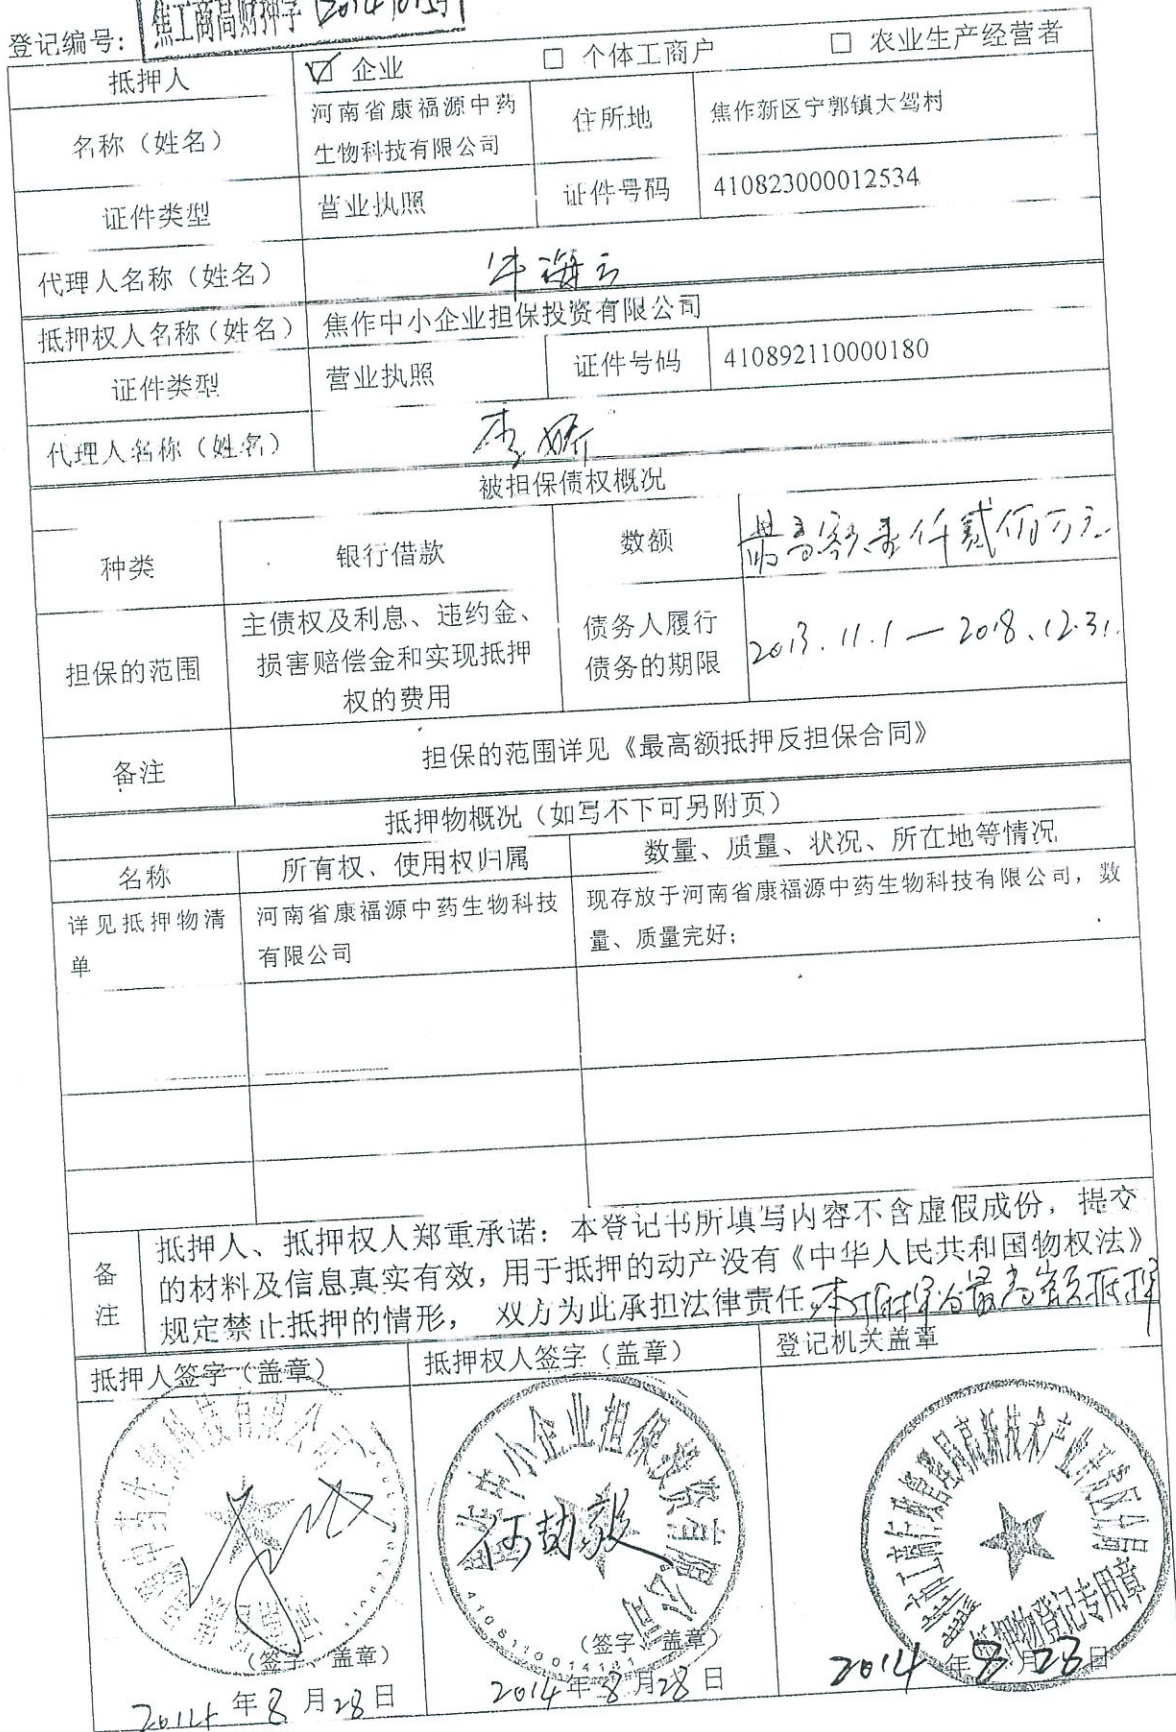 登记编号: 焦工商高财押字
抵押人 ☑ 企业 □ 个体工商户 □ 农业生产经营者
名称（姓名） 河南省康福源中药生物科技有限公司 住所地 焦作新区宁郭镇大驾村
证件类型 营业执照 证件号码 410823000012534
代理人名称（姓名） 牛海云
抵押权人名称（姓名） 焦作中小企业担保投资有限公司
证件类型 营业执照 证件号码 410892110000180
代理人名称（姓名） 李娇
被担保债权概况
种类 银行借款 数额 最高额壹仟贰佰万元
担保的范围 主债权及利息、违约金、损害赔偿金和实现抵押权的费用 债务人履行债务的期限 2013.11.1—2018.12.31.
备注 担保的范围详见《最高额抵押反担保合同》
抵押物概况（如写不下可另附页）
名称 所有权、使用权归属 数量、质量、状况、所在地等情况
详见抵押物清单 河南省康福源中药生物科技有限公司 现存放于河南省康福源中药生物科技有限公司，数量、质量完好；
备注 抵押人、抵押权人郑重承诺：本登记书所填写内容不含虚假成份，提交
的材料及信息真实有效，用于抵押的动产没有《中华人民共和国物权法》
规定禁止抵押的情形， 双方为此承担法律责任 本抵押为最高额抵押
抵押人签字（盖章） 抵押权人签字（盖章） 登记机关盖章
焦作中小企业担保投资有限公司
抵押物登记专用章
（签字、盖章） （签字、盖章）
2014年8月28日 2014年8月28日 2014年8月28日